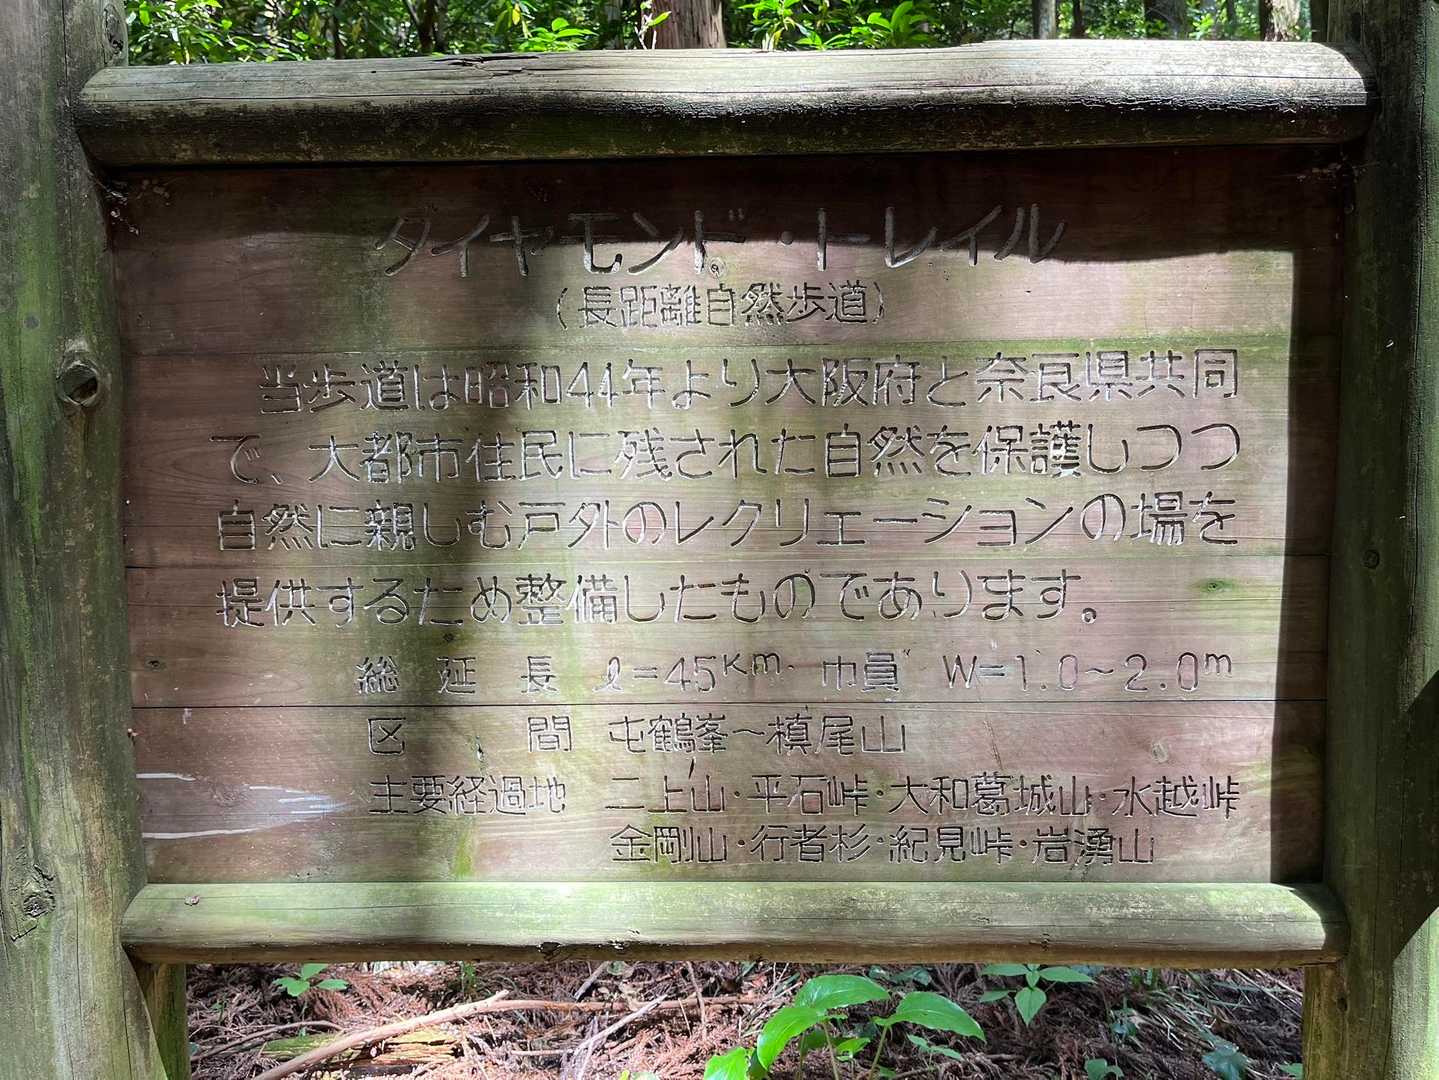 ダイヤモンド・トレイル
(長距離自然歩道)
当歩道は昭和44年より大阪府と奈良県共同
で、大都市住民に残された自然を保護しつつ
自然に親しむ戸外のレクリェーションの場を
提供するため整備したものであります。
総延長 ℓ=45Km. 巾員 W=1.0~2.0m
区間 屯鶴峯~槙尾山
主要経過地 二上山・平石峠・大和葛城山・水越峠
金剛山・行者杉・紀見峠・岩湧山